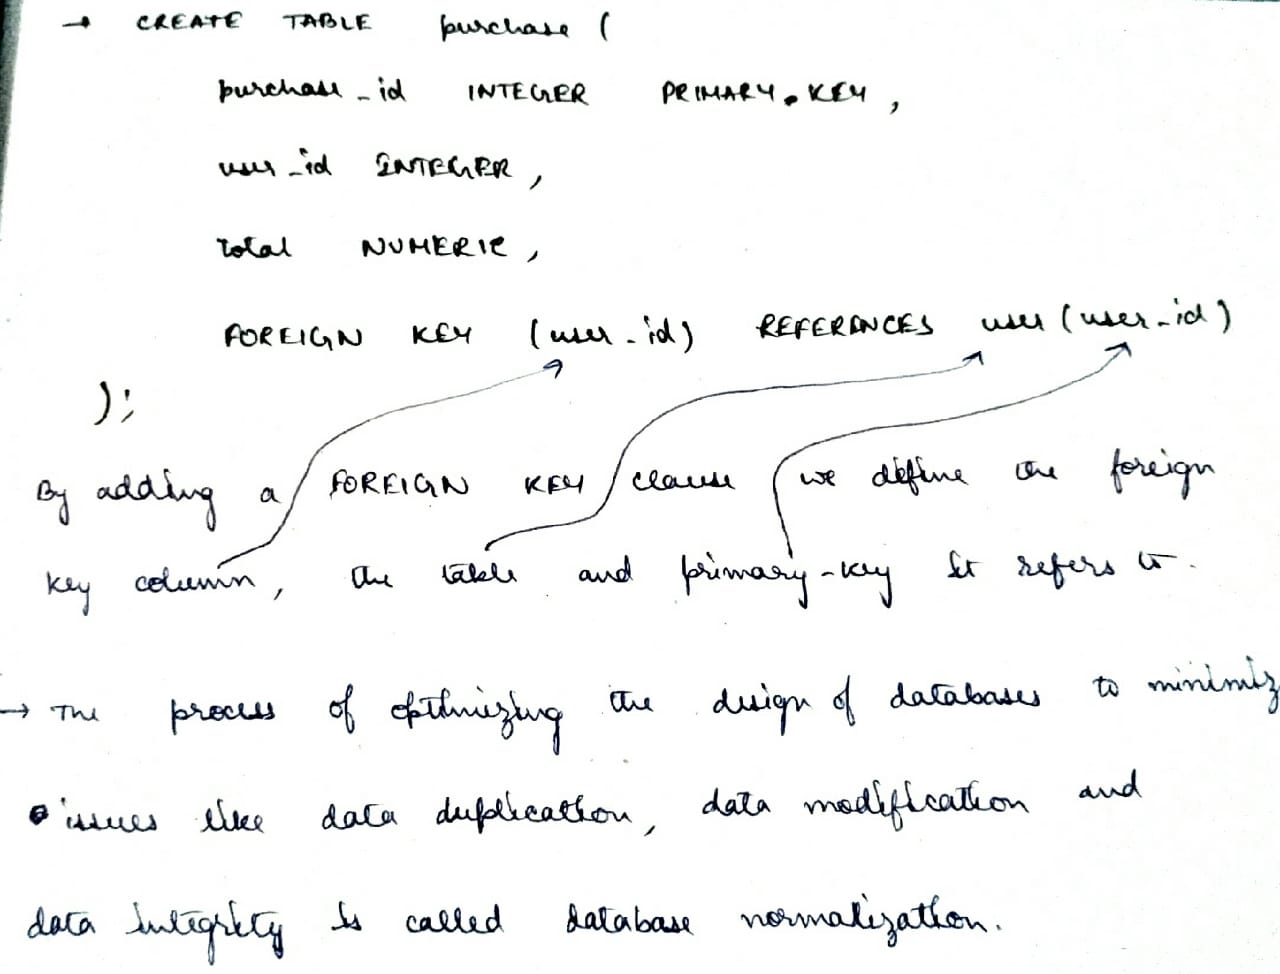 → CREATE TABLE purchase (
purchase_id INTEGER PRIMARY KEY,
user_id INTEGER,
total NUMERIC,
FOREIGN KEY (user_id) REFERENCES user (user_id)
);
By adding a FOREIGN KEY clause we define the foreign
key column, the table and primary-key it refers to.
→ The process of optimizing the design of databases to minimiz
issues like data duplication, data modification and
data integrity is called database normalization.